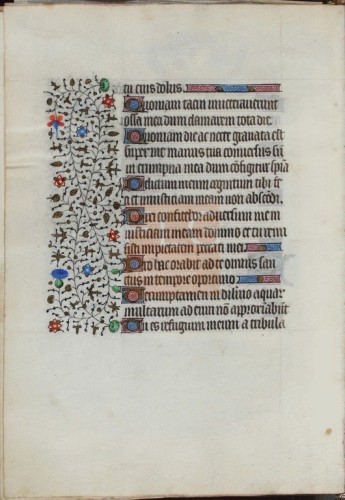 tu eius dolus.
Quoniam tacui inueterauerunt
ossa mea dum clamarem tota die
Quoniam die ac nocte grauata est
super me manus tua conuersus sū
in erumpna mea dum cōfigitur spīa
Delictum meum cognitum tibi
et iniusticiam meam non abscōdi.
Dixi confitebor aduersum me in
iusticiam meam domino et tu remi
sisti impietatem peccati mei
Pro hac orabit ad te omnis san
ctus in tempore oportuno
Uerumptamen in diluuio aquar
multarum ad eum nō approxiabūt
Tu es refugium meum a tribula